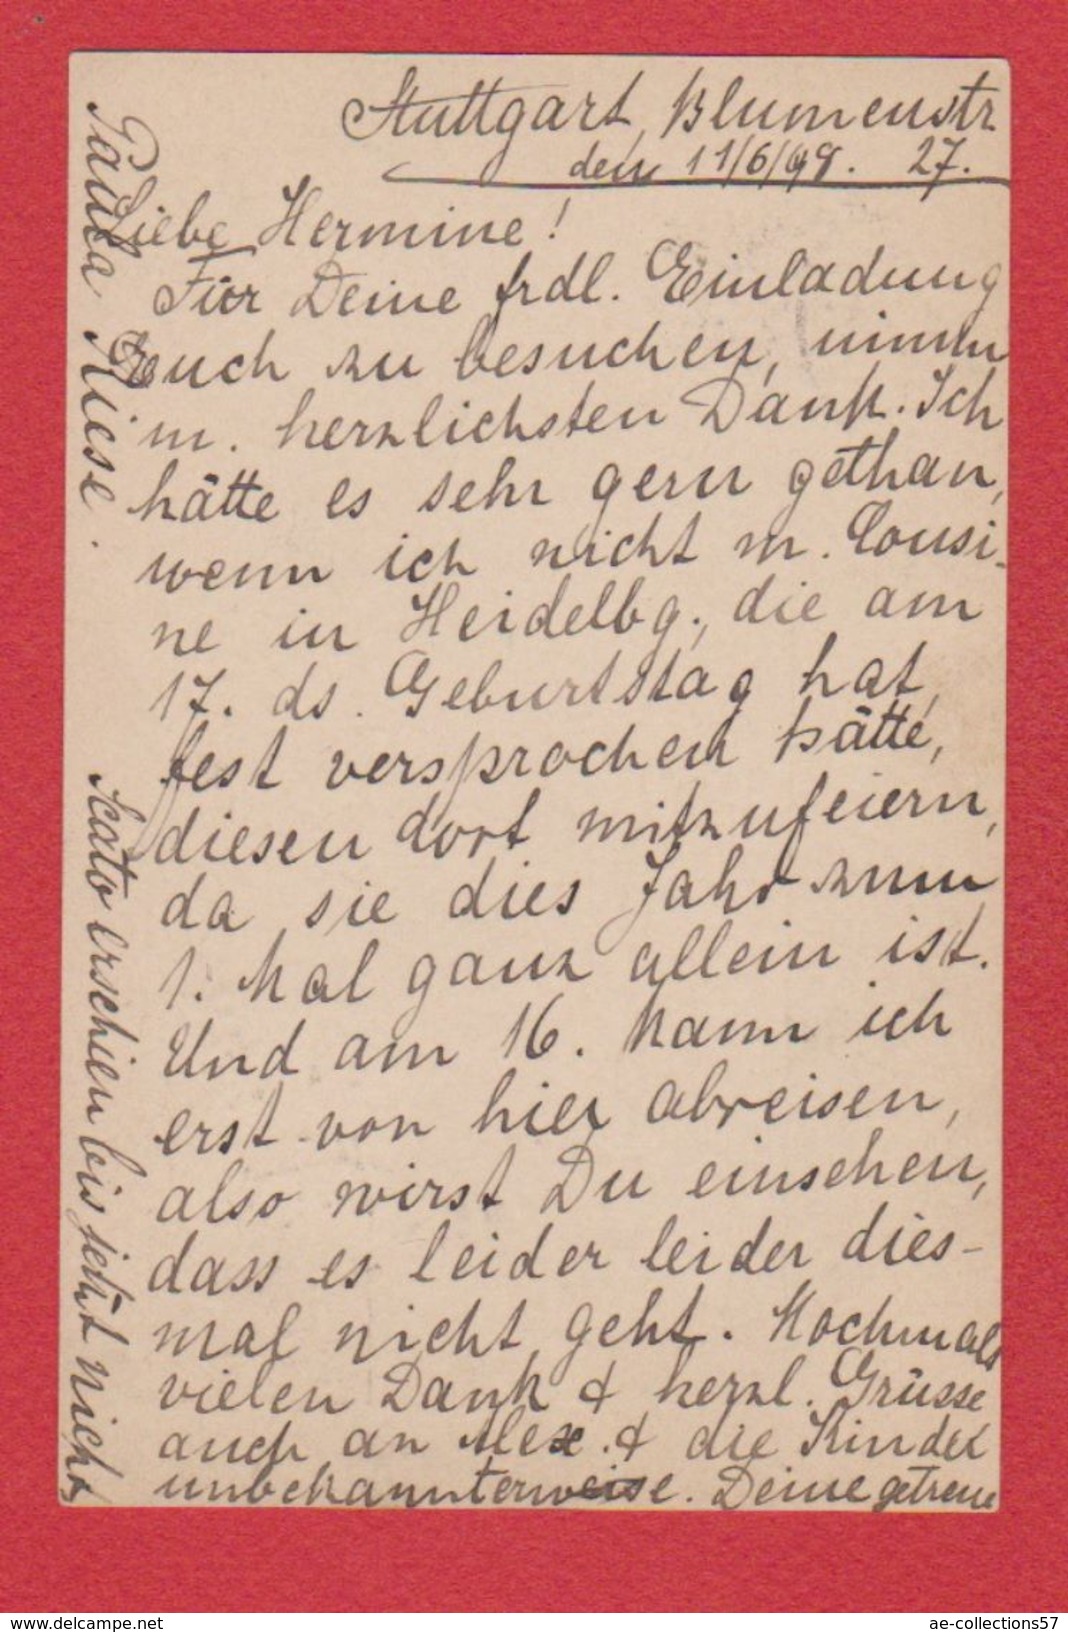 Stuttgart, Blumenstr
den 11/6/98. 27.
Liebe Hermine!
Für Deine frdl. Einladung
Euch zu besuchen, nimm
m. herzlichsten Dank. Ich
hätte es sehr gern gethan,
wenn ich nicht m. Cousi-
ne in Heidelbg., die am
17. ds. Geburtstag hat,
fest versprochen hätte,
diesen dort mitzufeiern,
da sie dies Jahr zum
1. Mal ganz allein ist.
Und am 16. kann ich
erst von hier abreisen,
also wirst Du einsehen,
dass es leider leider dies-
mal nicht geht. Nochmals
vielen Dank & herzl. Grüsse
auch an Alex. & die Kinder
unbekannterweise. Deine getreue
Paula Riese.
erschien bis jetzt nicht
www.delcampe.net
ae-collections57